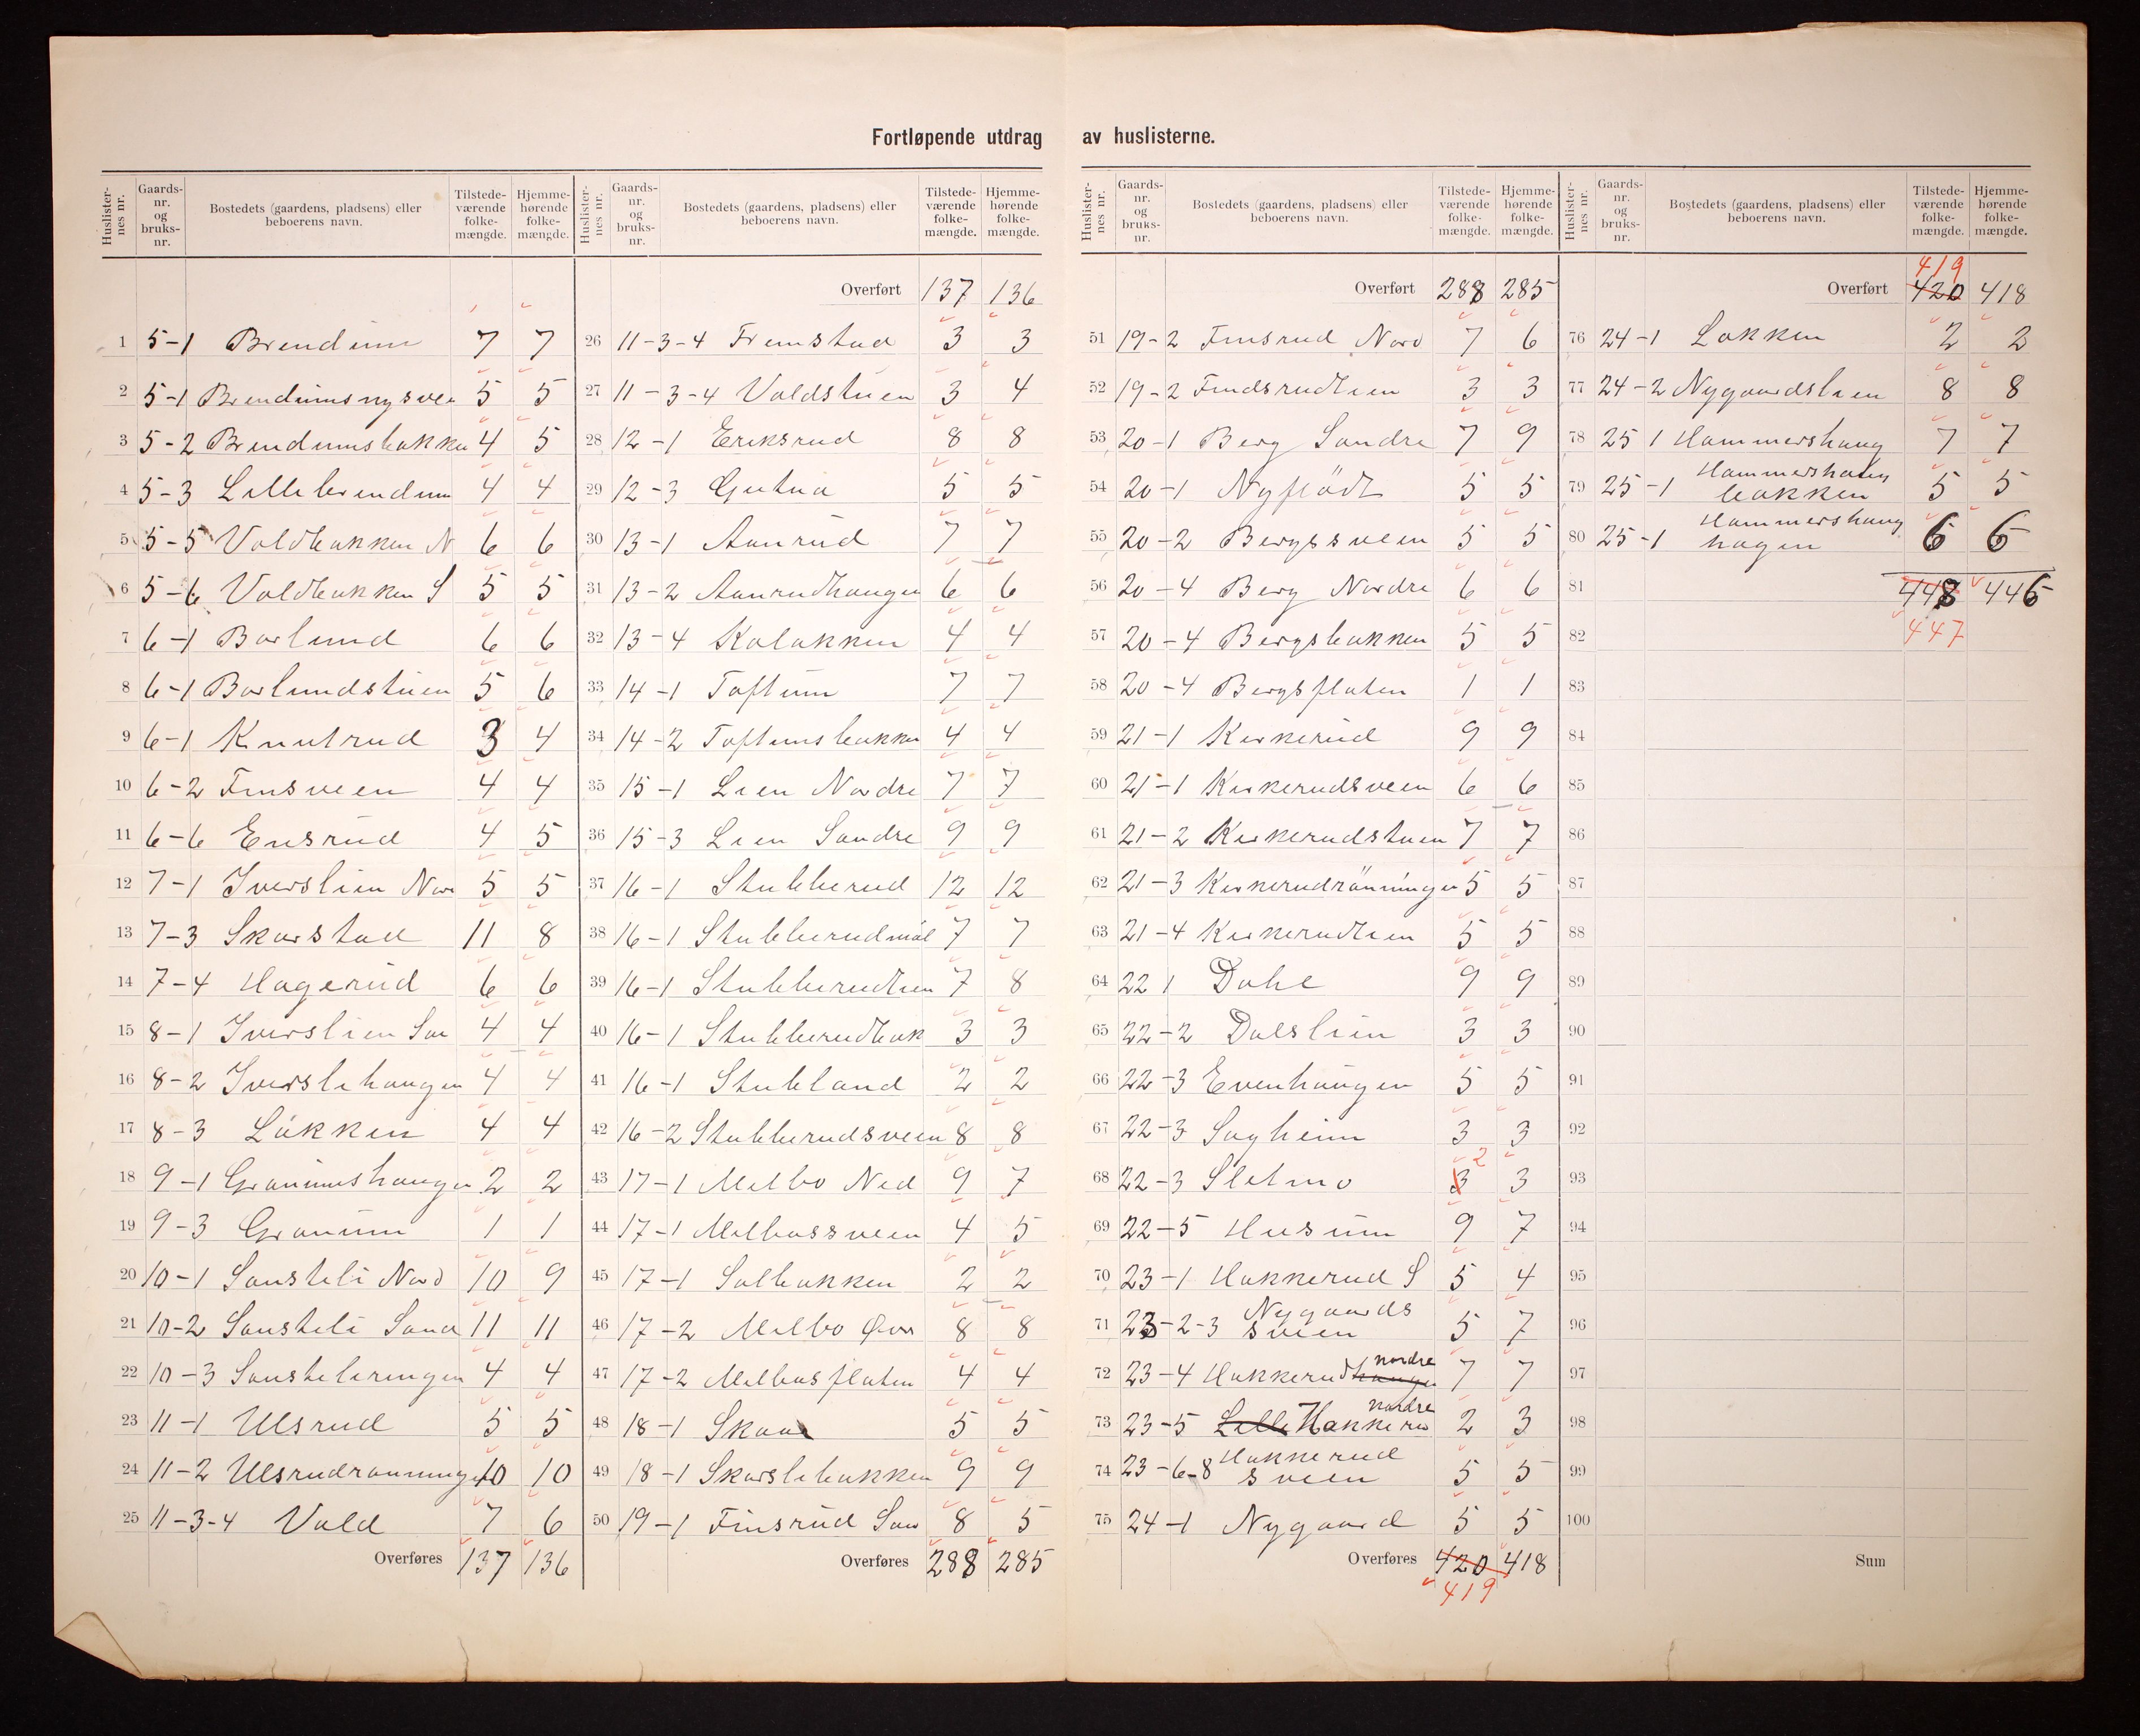 Fortløpende utdrag av huslisterne.
Huslisternes nr. | Gaards-nr. og bruks-nr. | Bostedets (gaardens, pladsens) eller beboerens navn. | Tilstede-værende folke-mængde. | Hjemme-hørende folke-mængde.
1 5-1 Brendum 7 7
2 5-1 Brendumsnysvee 5 5
3 5-2 Brendumsbakken 4 5
4 5-3 Lillebrendum 4 4
5 5-5 Voldbakken N 6 6
6 5-6 Voldbakken S 5 5
7 6-1 Borlund 6 6
8 6-1 Borlundstuen 5 6
9 6-1 Knutrud 3 4
10 6-2 Finsveen 4 4
11 6-6 Ensrud 4 5
12 7-1 Iverslien Nor 5 5
13 7-3 Skarstad 11 8
14 7-4 Hagerud 6 6
15 8-1 Iverslien Sør 4 4
16 8-2 Iverslihaugen 4 4
17 8-3 Løkken 4 4
18 9-1 Granumshaugen 2 2
19 9-3 Granum 1 1
20 10-1 Sønsteli Nord 10 9
21 10-2 Sønsteli Sønd 11 11
22 10-3 Sønsteliringen 4 4
23 11-1 Ulsrud 5 5
24 11-2 Ulsrudrønningen 10 10
25 11-3-4 Vold 7 6
Overføres 137 136
Huslisternes nr. | Gaards-nr. og bruks-nr. | Bostedets (gaardens, pladsens) eller beboerens navn. | Tilstede-værende folke-mængde. | Hjemme-hørende folke-mængde.
Overført 137 136
26 11-3-4 Fremstad 3 3
27 11-3-4 Voldstuen 3 4
28 12-1 Eriksrud 8 8
29 12-3 Gutua 5 5
30 13-1 Aanrud 7 7
31 13-2 Aanrudhaugen 6 6
32 13-4 Kolakken 4 4
33 14-1 Toftum 7 7
34 14-2 Toftumsbakken 4 4
35 15-1 Lien Nordre 7 7
36 15-3 Lien Søndre 9 9
37 16-1 Stubberud 12 12
38 16-1 Stubberudmöl 7 7
39 16-1 Stubberudlien 7 8
40 16-1 Stubberudbak 3 3
41 16-1 Stubland 2 2
42 16-2 Stubberudsveen 8 8
43 17-1 Melbo Ned 9 7
44 17-1 Melbossveen 4 5
45 17-1 Solbakken 2 2
46 17-2 Melbo Øvr 8 8
47 17-2 Melbosflaten 4 4
48 18-1 Skaar 5 5
49 18-1 Skarslibakken 9 9
50 19-1 Finsrud Søn 8 5
Overføres 288 285
Huslisternes nr. | Gaards-nr. og bruks-nr. | Bostedets (gaardens, pladsens) eller beboerens navn. | Tilstede-værende folke-mængde. | Hjemme-hørende folke-mængde.
Overført 288 285
51 19-2 Finsrud Nord 7 6
52 19-2 Findsrudlien 3 3
53 20-1 Berg Søndre 7 9
54 20-1 Nyflödt 5 5
55 20-2 Bergssveen 5 5
56 20-4 Berg Nordre 6 6
57 20-4 Bergsbakken 5 5
58 20-4 Bergsflaten 1 1
59 21-1 Kirkerud 9 9
60 21-1 Kirkerudsveen 6 6
61 21-2 Kirkerudstuen 7 7
62 21-3 Kirkerudrönningen 5 5
63 21-4 Kirkerudlien 5 5
64 22 1 Dahl 9 9
65 22-2 Dalslien 3 3
66 22-3 Evenhaugen 5 5
67 22-3 Sagheim 3 3
68 22-3 Sletmo 3 2 3
69 22-5 Husum 9 7
70 23-1 Hakkerud S 5 4
71 23-2-3 Nygaards
sveen 5 7
72 23-4 Hakkerudhaugen nordre 7 7
73 23-5 Lille Hakkerud nordre 2 3
74 23-6-8 Hakkerud
sveen 5 5
75 24-1 Nygaard 5 5
Overføres 420 418
419
Huslisternes nr. | Gaards-nr. og bruks-nr. | Bostedets (gaardens, pladsens) eller beboerens navn. | Tilstede-værende folke-mængde. | Hjemme-hørende folke-mængde.
419
Overført 420 418
76 24-1 Løkken 2 2
77 24-2 Nygaardslien 8 8
78 25 1 Hammershaug 7 7
79 25-1 Hammershaug
bakken 5 5
80 25-1 Hammershaug
hagen 6 6
81 448 446
82 447
83
84
85
86
87
88
89
90
91
92
93
94
95
96
97
98
99
100
Sum